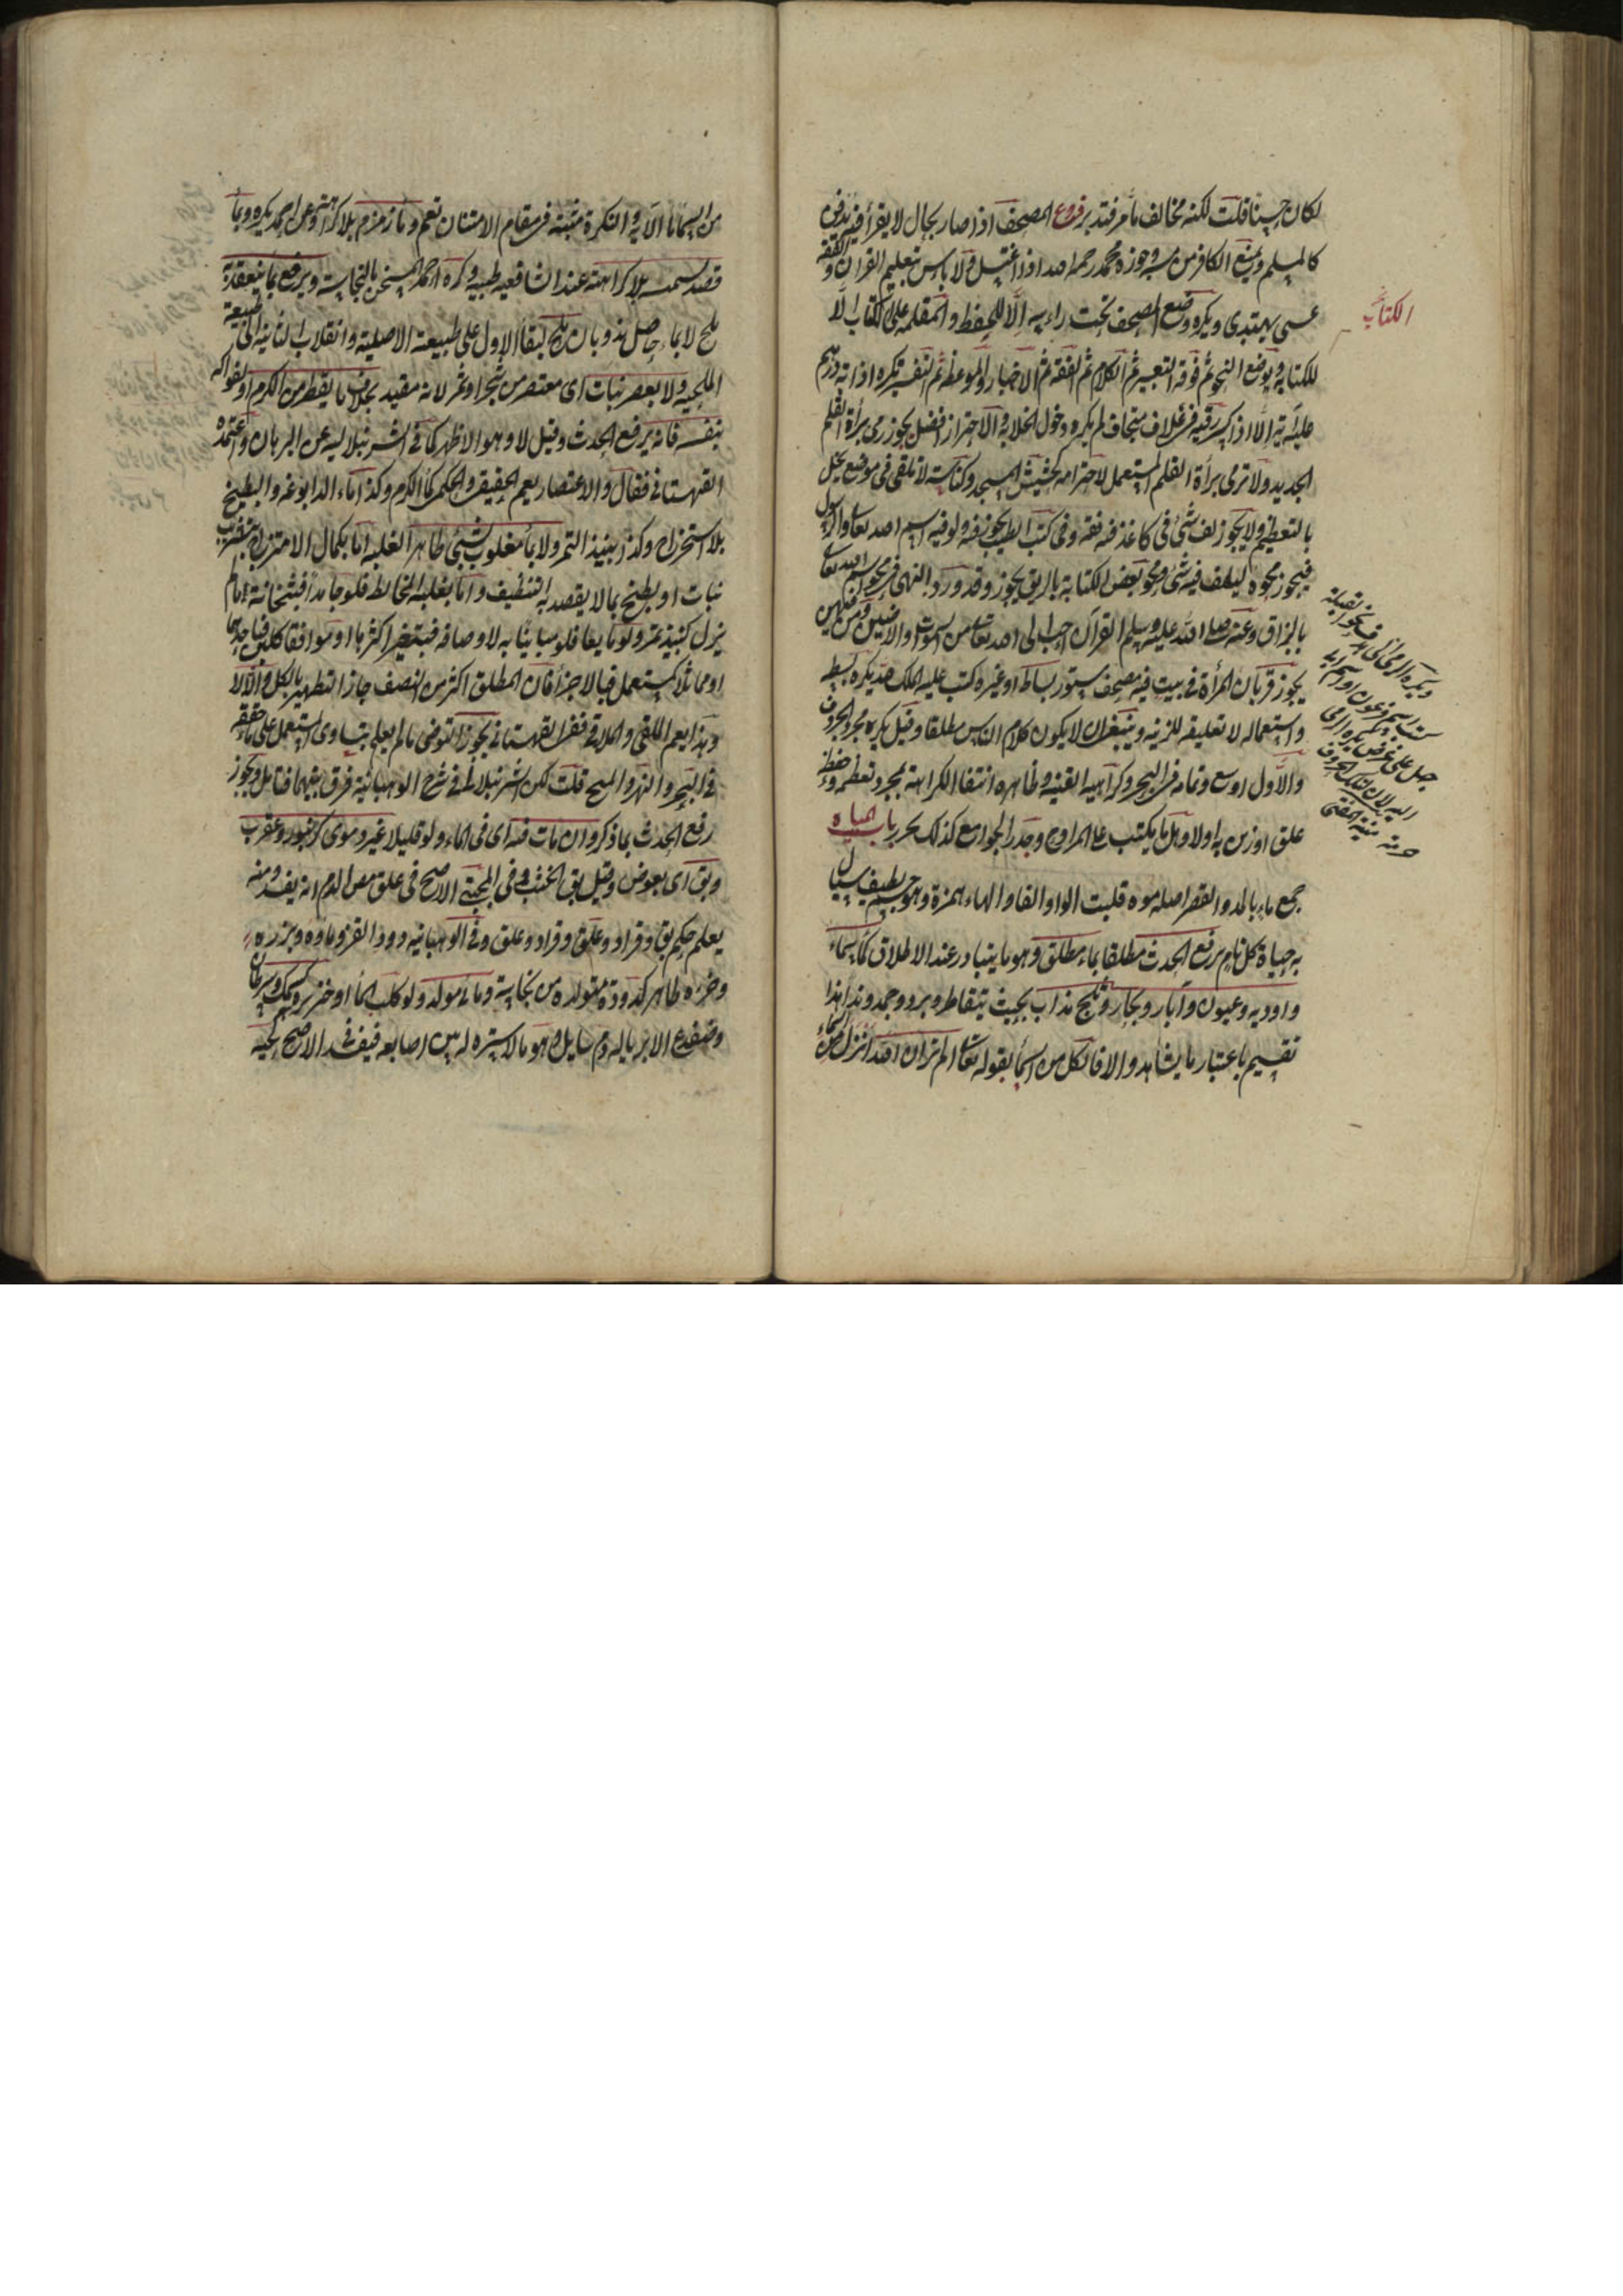 لكان حسنا قلت لكنه مخالف مامر فتدبر فروع المصحف اذا صار بحال لا يقرأ فيه يدفن
كالمسلم ويمنع الكافر من مسه وجوزه محمد رحمه الله اذا اغتسل ولا باس بتعليم القرآن والفقه
عسى يهتدى ويكره وضع المصحف تحت راسه الا للحفظ والمقلمة على الكتاب الا
للكتابة ويوضع النحو ثم فوقه التعبير ثم الكلام ثم الفقه ثم الاخبار والمواعظ ثم التفسير تكره اذابة درهم
عليه آية الا اذا كسره رقية فى غلاف متجاف لم يكره دخول الخلا به والاحتراز افضل يجوز رمى براة القلم
الجديد ولا ترمى براة القلم المستعمل لاحترامه كحشيش المسجد وكناسته لا تلقى فى موضع يخل
بالتعظيم ولا يجوز لف شئ فى كاغذ فيه فقه وفى كتب الطب يجوز ولو فيه اسم الله تعالى او الرسول
فيجوز محوه ليلف فيه شئ ومحو بعض الكتابة بالريق يجوز وقد ورد النهى فى محو اسم الله تعالى
بالبزاق وعنه صلى الله عليه وسلم القرآن احب الى الله تعالى من السموات والارضين ومن فيهن
يجوز قربان المرأة فى بيت فيه مصحف مستور بساط او غيره كتب عليه الملك لله يكره بسطه
واستعماله لا تعليقه للزينة وينبغى ان لا يكون كلام الناس مطلقا وقيل يكره مجرد الحروف
والاول اوسع وتمامه فى البحر وكراهية القنية وظاهره انتفا الكراهة بمجرد تعظيمه وحفظه
علق او زين به اولا وهل ما يكتب على المراوح وجدر الجوامع كذلك يحرر باب المياه
جمع ماء بالمد والقصر اصله موه قلبت الواو الفا والهاء همزة وهو جسم لطيف سيال
به حياة كل نام يرفع الحدث مطلقا بماء مطلق وهو ما يتبادر عند الاطلاق كماء سماء
واودية وعيون وآبار وبحار وثلج مذاب بحيث يتقاطر وبرد وجمد وندا هذا
تقسيم باعتبار ما يشاهد والا فالكل من السما لقوله تعالى الم تر ان الله انزل من السماء
الكتاب
من السما ماء الآية والنكرة مثبتة فى مقام الامتنان تعم وماء زمزم بلا كراهة وعن احمد يكره وبماء
قصد تشمسه بلا كراهته عند الشافعية طبية وكره احمد المسخن بالنجاسة ويرفع بما ينعقد به
ملح لا بماء حاصل بذوبان ملح لبقاء الاول على طبيعته الاصلية وانقلاب الثانى الى طبيعة
الملحية ولا بعصير نبات اى معتصر من شجر او ثمر لانه مقيد بخلاف ما يقطر من الكرم او الفواكه
بنفسه فانه يرفع الحدث وقيل لا وهو الاظهر كما فى الشرنبلالية عن البرهان واعتمده
القهستانى فقال والاعتصار يعم الحقيقى والحكمى كماء الكرم وكذا ماء الدابوغه والبطيخ
بلا استخراج وكذا نبيذ التمر ولا بماء مغلوب بشئ طاهر الغلبة اما بكمال الامتزاج بتشرب
نبات او بطبخ بما لا يقصد به التنظيف واما بغلبة المخالط فلو جامدا فبثخانة مالم
يزل كنبيذ تمر ولو مايعا فلو مباينا به لاوصافه فبتغير اكثرها او موافقا كلبن فباحدها
او مماثلا كمستعمل فبالاجزا فان المطلق اكثر من النصف جاز التطهير بالكل والا لا
وهذا يعم الملقى والملاقى ففى القهستانى يجوز التوضى مالم يعلم بتساوى المستعمل على ما حققه
فى البحر والنهر والمنح قلت لكن الشرنبلالى فى شرح الوهبانية فرق بينهما فتامل ويجوز
رفع الحدث بما ذكر وان مات فيه اى فى الماء ولو قليلا غير دموى كزنبور وعقرب
وبق اى بعوض وقيل بق الخشب وفى المجتبى الاصح فى علق مص الدم انه يفسد ومنه
يعلم حكم بق وقراد وعلق وقراد وعلق وفى الوهبانية ودود القز وماؤه وبزره
وخرؤه طاهر كدودة متولدة من نجاسة ومائى مولد ولو كلب الماء او خنزيره كسمك وسرطان
وضفدع الا بريا له دم سايل وهو ما لا سترة له بين اصابعه فيفسد فى الاصح كحية